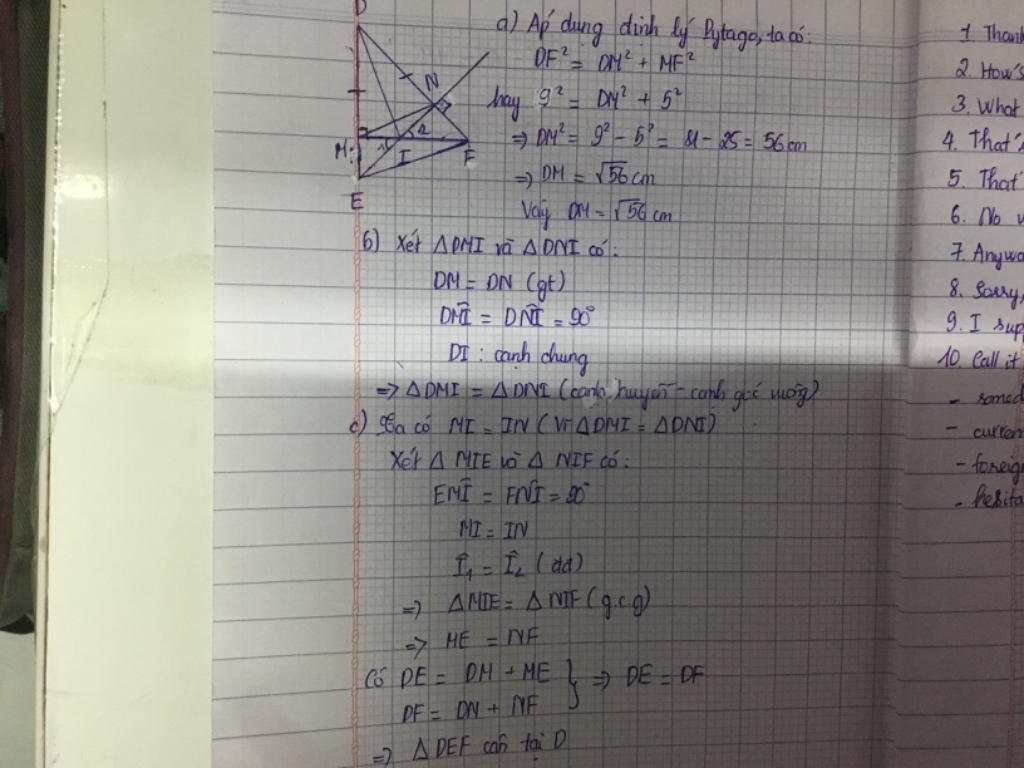 D
N
M
1
2
I
F
E
a) Áp dụng định lý Pytago, ta có:
DF² = DM² + MF²
hay 9² = DM² + 5²
=> DM² = 9² - 5² = 81 - 25 = 56 cm
=> DM = √56 cm
Vậy DM = √56 cm
b) Xét △DMI và △DNI có:
DM = DN (gt)
DM̂I = DN̂I = 90°
DI : cạnh chung
=> △DMI = △DNI (cạnh huyền - cạnh góc vuông)
c) Ta có MI = IN (vì △DMI = △DNI)
Xét △ MIE và △ NIF có:
EM̂I = FN̂I = 90°
MI = IN
Î₁ = Î₂ (đđ)
=> △MIE = △NIF (g.c.g)
=> ME = NF
Có DE = DM + ME
DF = DN + NF
} => DE = DF
=> △DEF cân tại D
1. Thank
2. How's
3. What
4. That's
5. That
6. No
7. Anywa
8. Sorry,
9. I supp
10. Call it
- somed
- curren
- foreign
- hesita